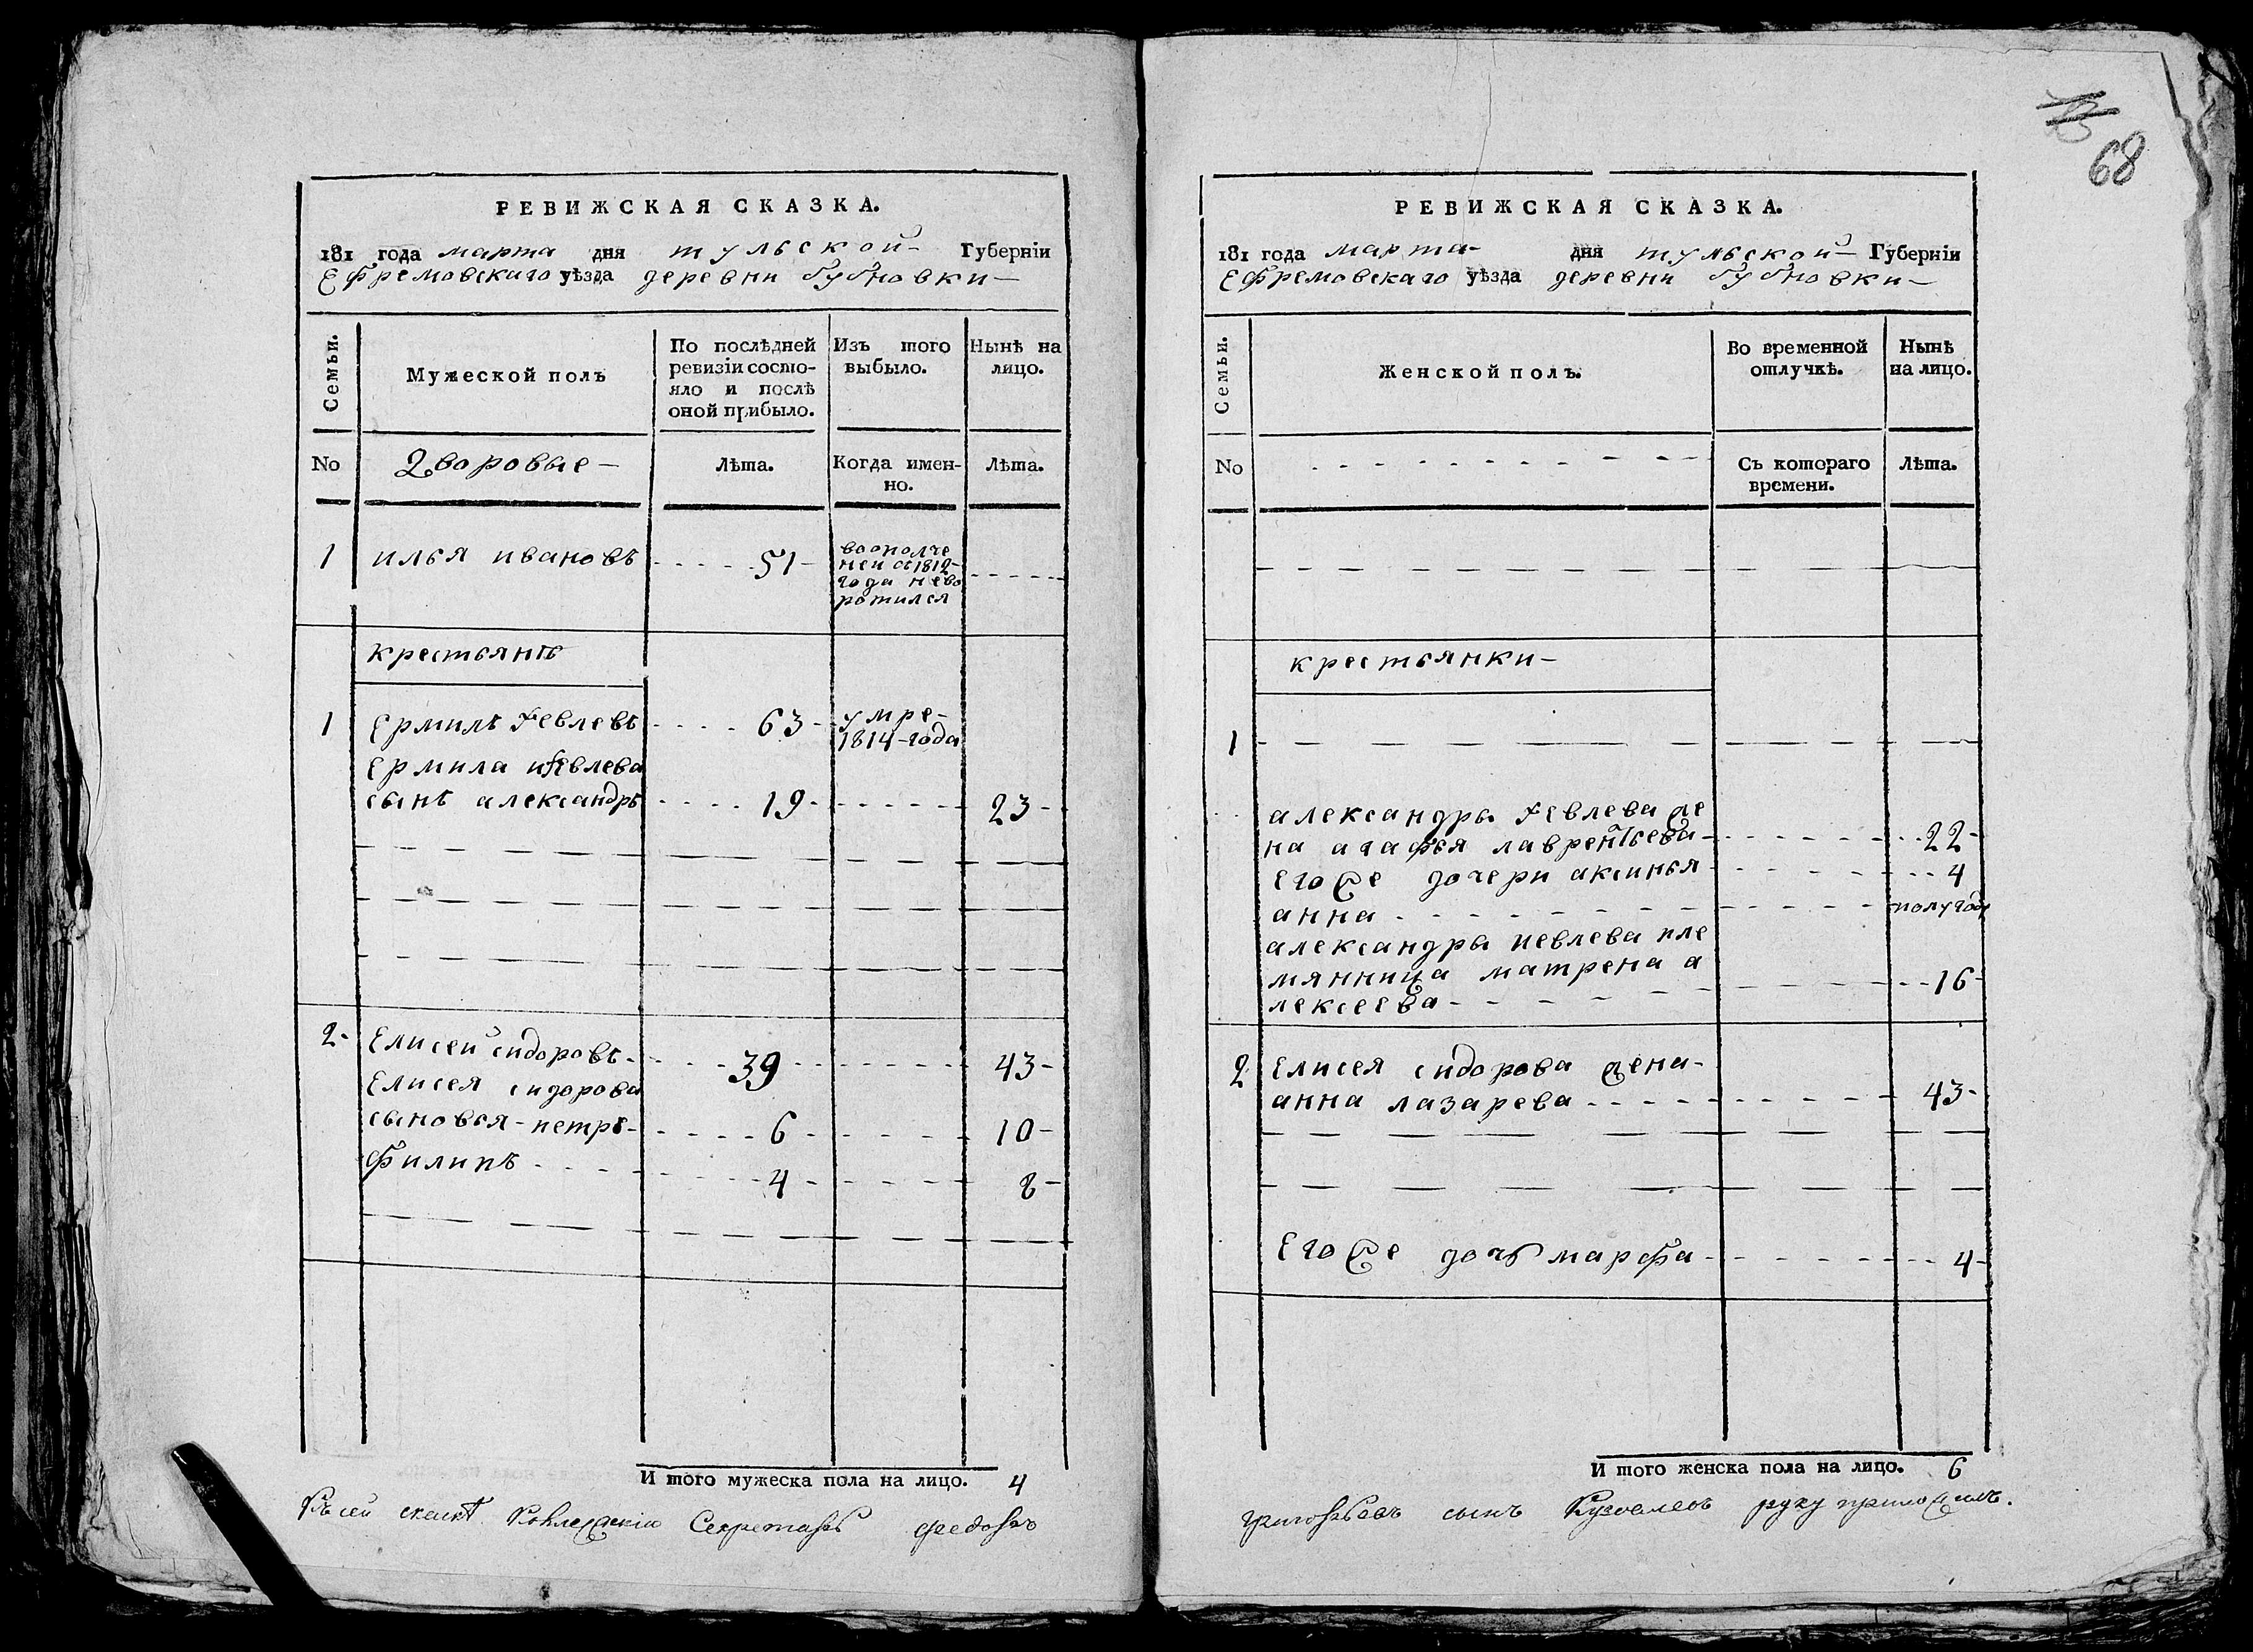 68
РЕВИЖСКАЯ СКАЗКА.
181 года марта дня тульской Губерніи
Ефремовскаго уѣзда деревни бубновки
Семьи.
Мужеской полъ
По послѣдней ревизіи состояло и послѣ оной прибыло.
Изъ того выбыло.
Нынѣ на лицо.
No
дворовые
Лѣта.
Когда именно.
Лѣта.
1 илья ивановъ 51
воополче
неи съ 1812
года нево
ротился
крестьянѣ
1 Ермилъ Іевлевъ 63 умре
1814 года
Ермила иевлева
сынъ александръ 19 23
2 Елисеи сидоровъ 39 43
Елисея сидорова
сыновья петръ 6 10
филипъ 4 8
И того мужеска пола на лицо. 4
Къ сей скаскѣ Коллежскіи Секретарь федоръ
РЕВИЖСКАЯ СКАЗКА.
181 года марта дня тульской Губерніи
Ефремовскаго уѣзда деревни бубновки
Семьи.
Женской полъ.
Во временной отлучкѣ.
Нынѣ на лицо.
No
Съ котораго времени.
Лѣта.
крестьянки
1
александра Іевлева же
на агафья лаврентьева 22
его же дочери аксинья 4
анна полугоду
александра иевлева пле
мянница матрена а
лексеева 16
2 Елисея сидорова жена
анна лазарева 43
Его же дочь марфа 4
И того женска пола на лицо. 6
григорьевъ сынъ Кузовлевъ руку приложилъ.